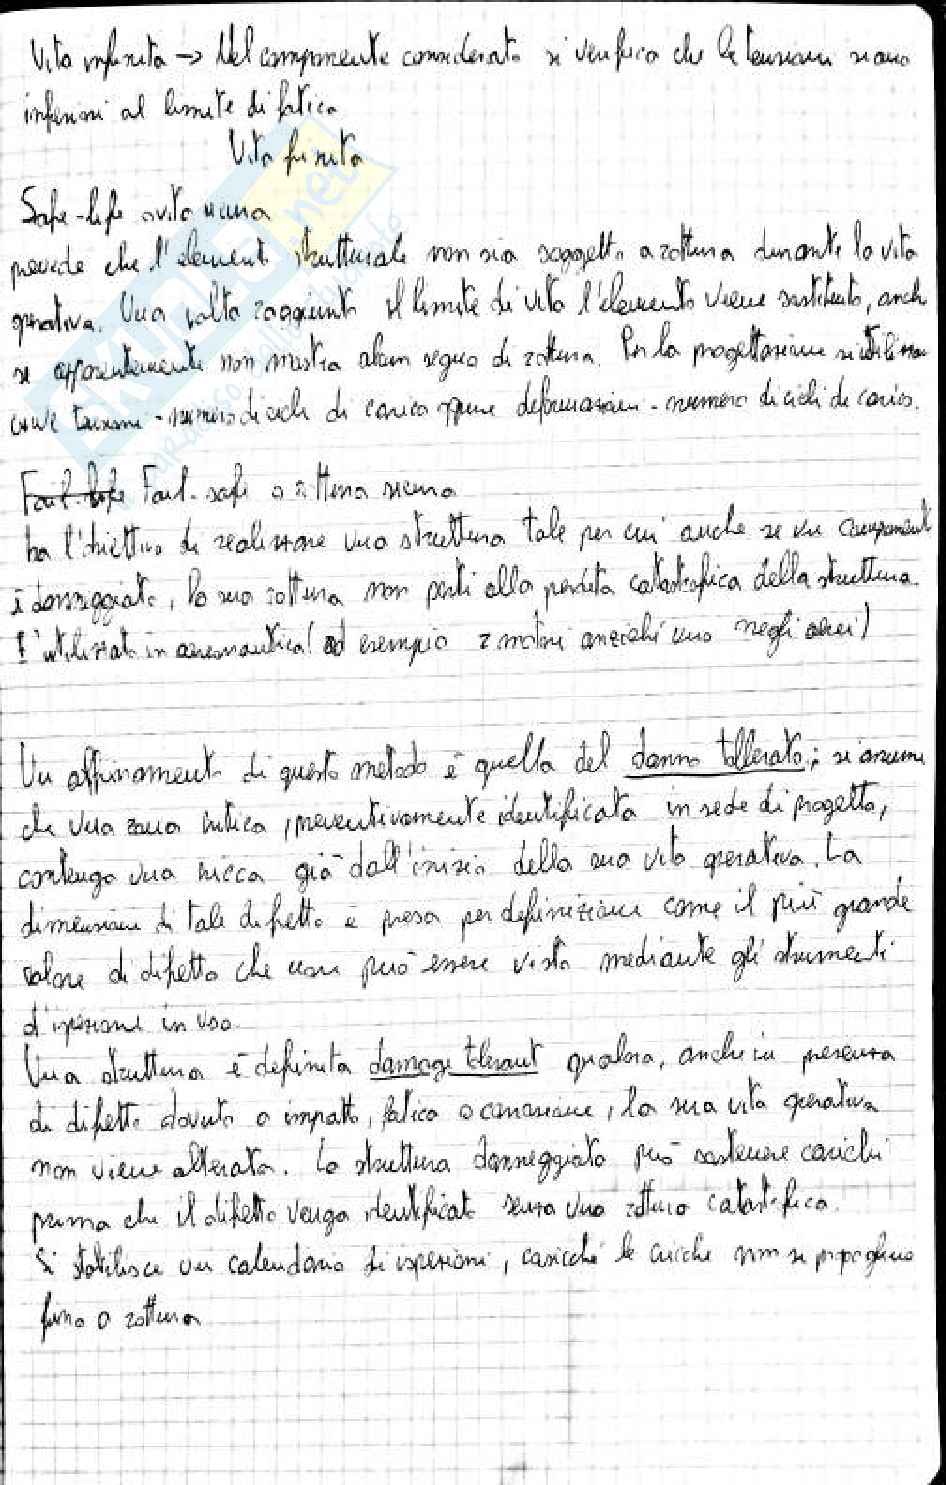 Vita infinita → Nel componente considerato si verifica che le tensioni siano
inferiori al limite di fatica
Vita finita
Safe-life o vita sicura
prevede che l'elemento strutturale non sia soggetto a rottura durante la vita
operativa. Una volta raggiunto il limite di vita l'elemento viene sostituito, anche
se apparentemente non mostra alcun segno di rottura. Per la progettazione si utilizzano
curve tensioni - numero di cicli di carico oppure deformazioni - numero di cicli di carico.
Fail-life Fail-safe o rottura sicura
ha l'obiettivo di realizzare una struttura tale per cui anche se un componente
è danneggiato, la sua rottura non porti alla perdita catastrofica della struttura.
E' utilizzato in aeronautica (ad esempio 2 motori anziché uno negli aerei)
Un affinamento di questo metodo è quella del danno tollerato; si assume
che una zona critica, preventivamente identificata in sede di progetto,
contenga una cricca già dall'inizio della sua vita operativa. La
dimensione di tale difetto è presa per definizione come il più grande
valore di difetto che non può essere visto mediante gli strumenti
d'ispezione in uso
Una struttura è definita damage tolerant qualora, anche in presenza
di difetto dovuto a impatto, fatica o corrosione, la sua vita operativa
non viene alterata. La struttura danneggiata può sostenere carichi
prima che il difetto venga identificato senza una rottura catastrofica.
Si stabilisce un calendario di ispezioni, cosicché le cricche non si propaghino
fino a rottura
SKUOLA.net